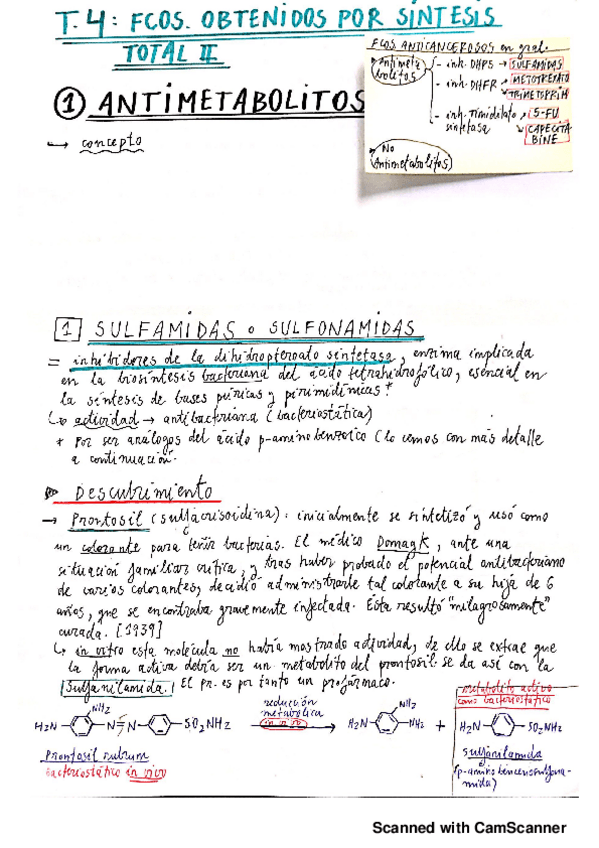 T.4: FCOS. OBTENIDOS POR SÍNTESIS
TOTAL II
FCOS. ANTICANCEROSOS en gral.
Antimeta
bolitos
- inh. DHPS → SULFAMIDAS
- inh. DHFR → METOTREXATO
TRIMETOPRIM
- inh. Timidilato
sintetasa
5-FU
CAPECITA
BINE
No
Antimetabolitos
① ANTIMETABOLITOS
↪ concepto
1 SULFAMIDAS o SULFONAMIDAS
= inhibidores de la dihidropteroato sintetasa, enzima implicada
en la biosíntesis bacteriana del ácido tetrahidrofólico, esencial en
la síntesis de bases púricas y pirimidínicas*
↪ actividad → antibacteriana (bacteriostática)
* Por ser análogos del ácido p-aminobenzoico (lo vemos con más detalle
a continuación.
Descubrimiento
→ Prontosil (sulfacrisoidina): inicialmente se sintetizó y usó como
un colorante para teñir bacterias. El médico Domagk, ante una
situación familiar crítica, y tras haber probado el potencial antibacteriano
de varios colorantes, decidió administrarle tal colorante a su hija de 6
años, que se encontraba gravemente infectada. Ésta resultó "milagrosamente"
curada. [1939]
↪ in vitro esta molécula no había mostrado actividad, de ello se extrae que
la forma activa debría ser un metabolito del prontosil se da así con la
sulfanilamida. El pr. es por tanto un profármaco.
metabolito activo
como bacteriostático
NH₂
H₂N N N SO₂NH₂
reducción
metabólica
in vivo
NH₂
H₂N NH₂ + H₂N SO₂NH₂
Prontosil rubrum
bacteriostático in vivo
sulfanilamida
(p-aminobencenosulfona-
mida)
Scanned with CamScanner